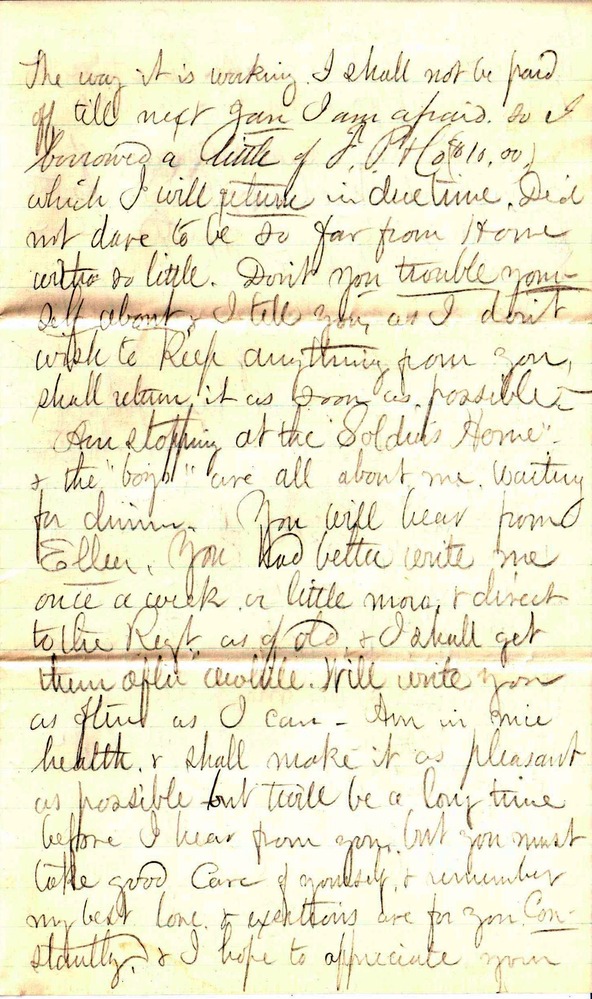 The way it is working I shall not be paid
off till next Jan I am afraid. so I
borrowed a little of J. P. H ($10.00)
which I will return in due time. Did
not dare to be so far from Home
with so little. Don't you trouble your-
self about, & I tell you, as I don't
wish to keep anything from you,
shall return it as soon as possible-
Am stopping at the "Soldiers Home".
& the "boys" are all about me. waiting
for dinner. You will hear from
Ellen. You had better write me
once a week or little more, & direct
to the Regt. as of old, & I shall get
them after awhile. Will write you
as often as I can - Am in nice
health. & shall make it as pleasant
as possible but twill be a long time
before I hear from you, but you must
take good Care of yourself, & remember
my best love. & exertions are for you Con-
stantly, & I hope to appreciate your